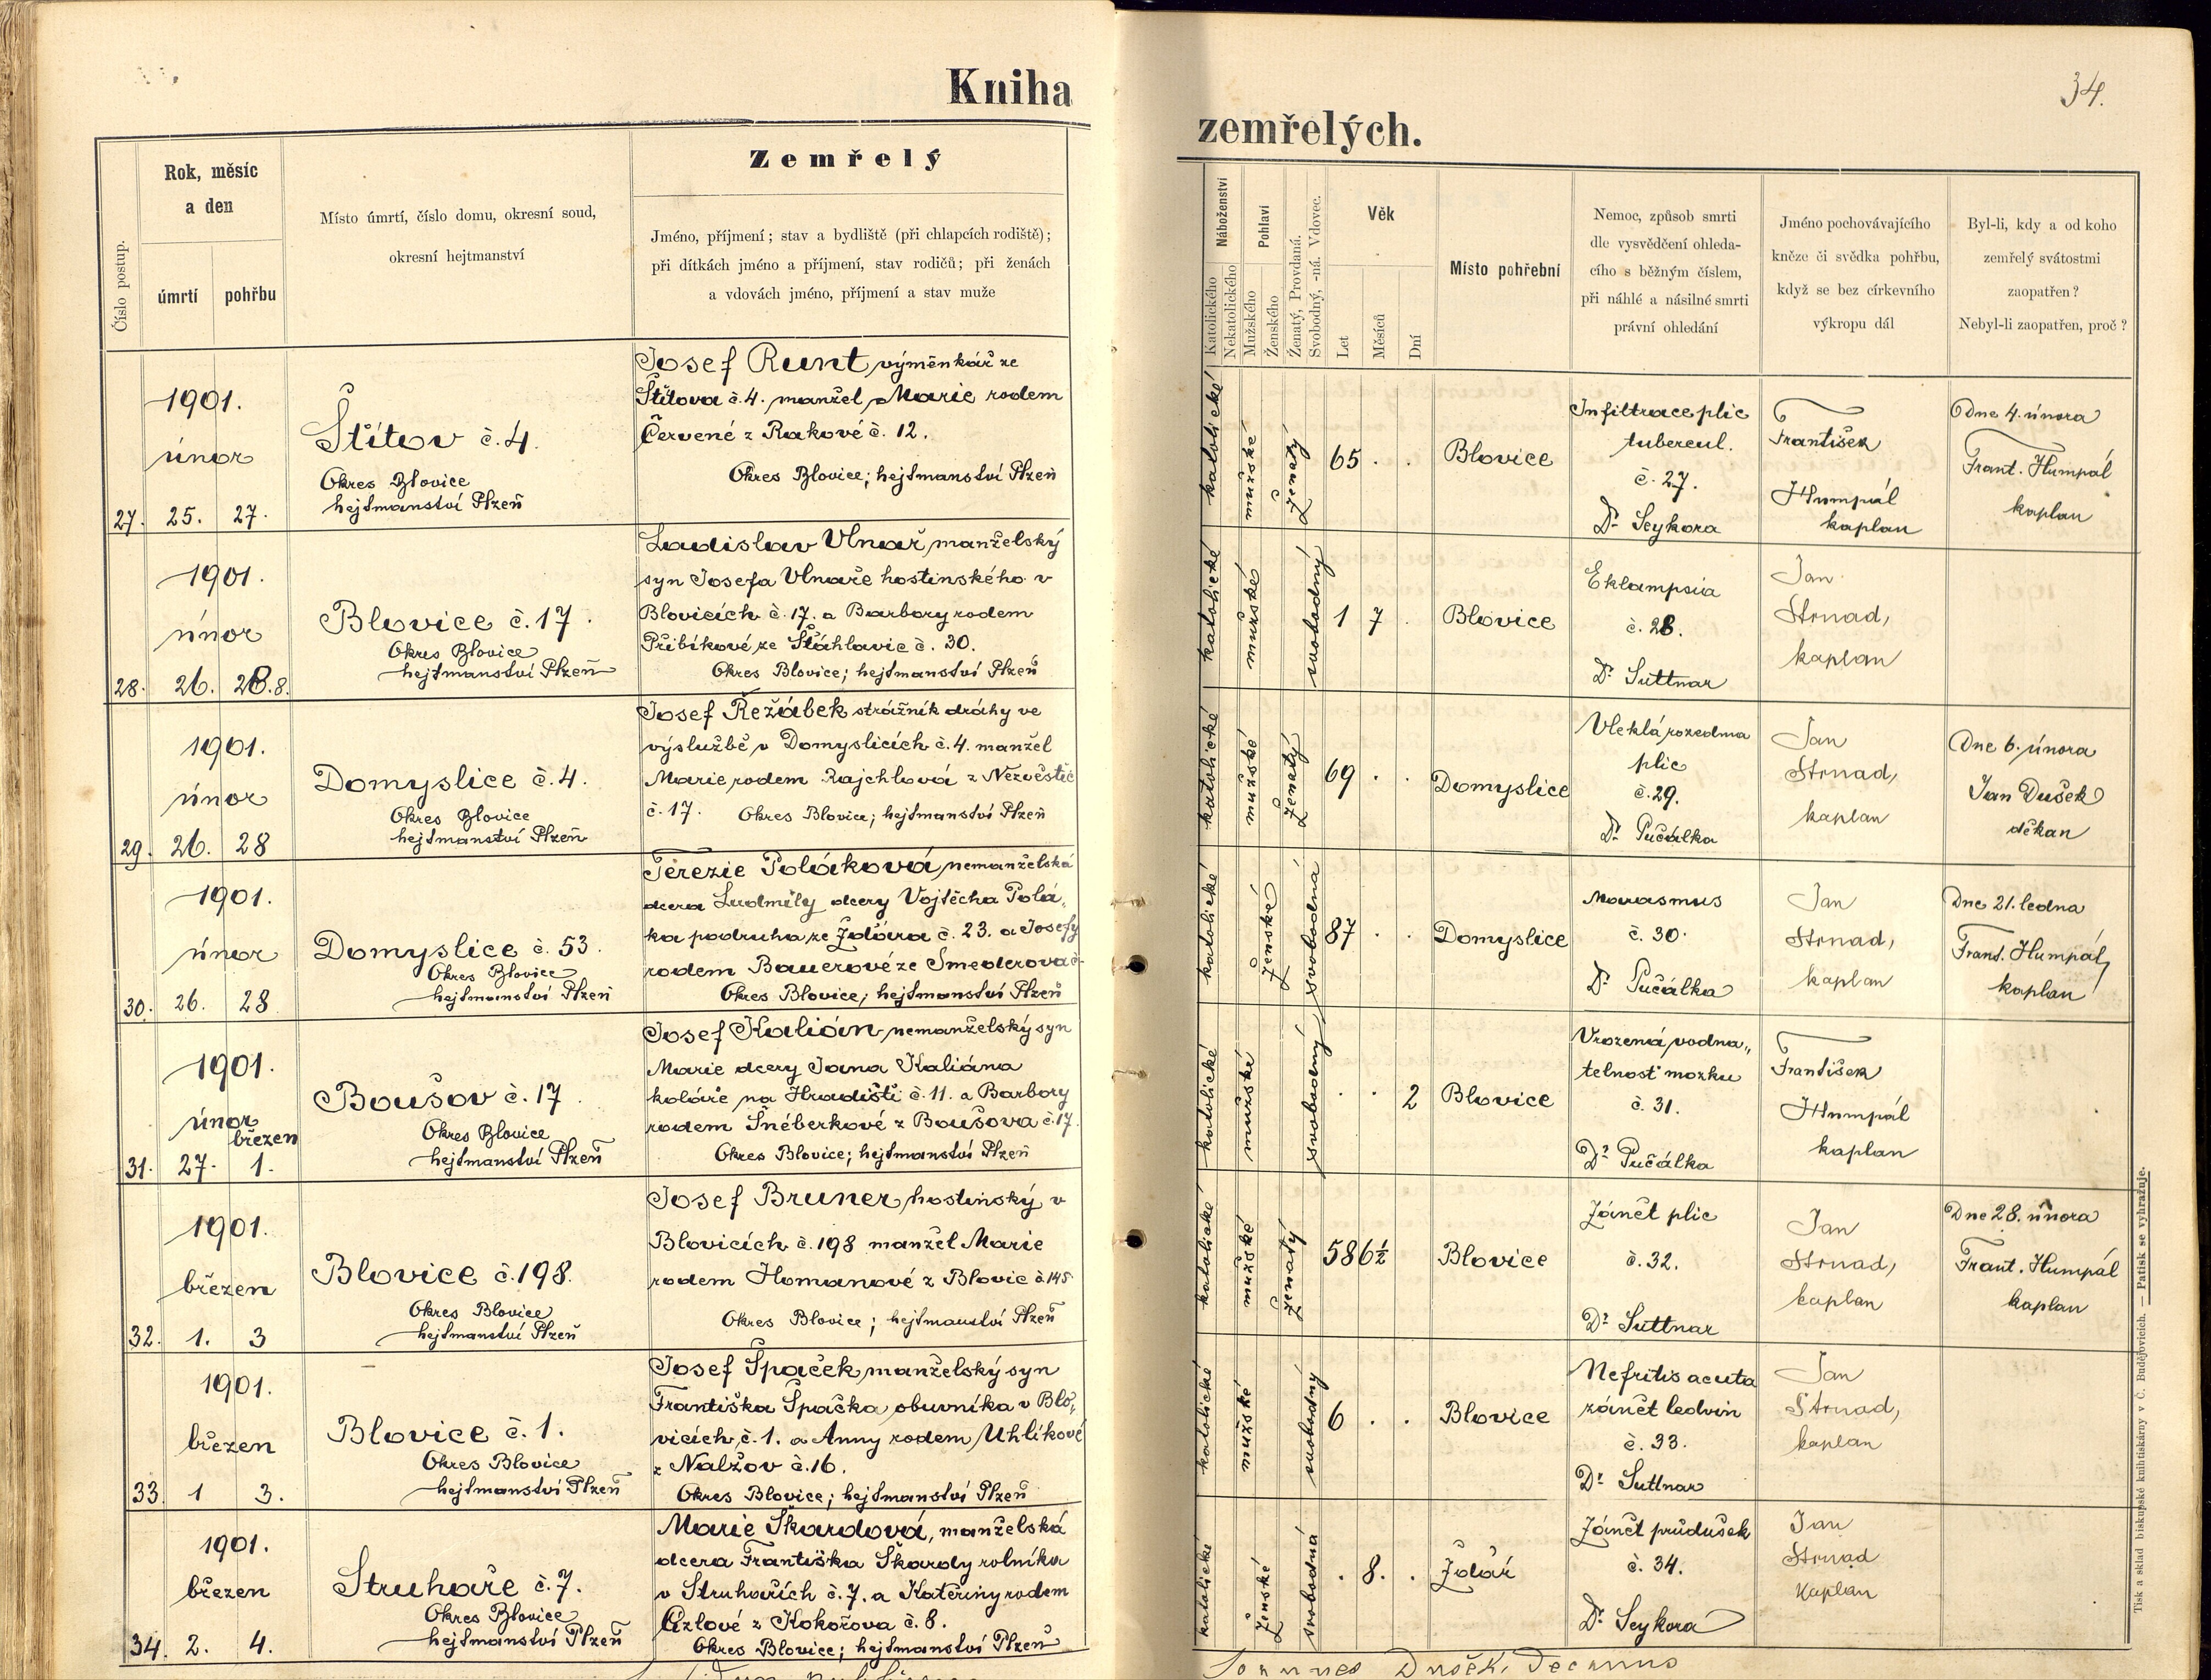 Kniha
34.
zemřelých.
Číslo postup.
Rok, měsíc
a den
úmrtí
pohřbu
Místo úmrtí, číslo domu, okresní soud,
okresní hejtmanství
Zemřelý
Jméno, příjmení; stav a bydliště (při chlapcích rodiště);
při dítkách jméno a příjmení, stav rodičů; při ženách
a vdovách jméno, příjmení a stav muže
Náboženství
Katolického
Nekatolického
Pohlaví
Mužského
Ženského
Ženatý, Provdaná.
Svobodný, -ná. Vdovec.
Věk
Let
Měsíců
Dní
Místo pohřební
Nemoc, způsob smrti
dle vysvědčení ohleda-
cího s běžným číslem,
při náhlé a násilné smrti
právní ohledání
Jméno pochovávajícího
kněze či svědka pohřbu,
když se bez církevního
výkropu dál
Byl-li, kdy a od koho
zemřelý svátostmi
zaopatřen?
Nebyl-li zaopatřen, proč?
27.
1901.
únor
25. 27.
Štítov č. 4.
Okres Blovice
hejtmanství Plzeň
Josef Runt, výměnkář ze
Štítova č. 4. manžel Marie rodem
Červené z Rakové č. 12.
Okres Blovice; hejtmanství Plzeň
katolické
mužské
Ženatý
65 . .
Blovice
Infiltrace plic
tubercul.
č. 27.
Dr. Seykora
František
Humpál
kaplan
Dne 4. února
Frant. Humpál
kaplan
28.
1901.
únor
26. 28. 8.
Blovice č. 17.
Okres Blovice
hejtmanství Plzeň
Ladislav Vlnař, manželský
syn Josefa Vlnaře hostinského v
Blovicích č. 17. a Barbory rodem
Přibíkové ze Šťáhlavic č. 30.
Okres Blovice; hejtmanství Plzeň
katolické
mužské
svobodný
1 7 .
Blovice
Eklampsia
č. 28.
Dr. Suttnar
Jan
Strnad,
kaplan
29.
1901.
únor
26. 28
Domyslice č. 4.
Okres Blovice
hejtmanství Plzeň
Josef Řežábek strážník dráhy ve
výslužbě v Domyslicích č. 4. manžel
Marie rodem Rajchlová z Nezvěstic
č. 17. Okres Blovice; hejtmanství Plzeň
katolické
mužské
Ženatý
69 . .
Domyslice
Vleklá rozedma
plic
č. 29.
Dr. Pučálka
Jan
Strnad,
kaplan
Dne 6. února
Jan Dušek
děkan
30.
1901.
únor
26. 28
Domyslice č. 53.
Okres Blovice
hejtmanství Plzeň
Terezie Poláková, nemanželská
dcera Ludmily dcery Vojtěcha Polá„
ka podruha ze Ždára č. 23. a Josefy
rodem Bauerové ze Smederova č.
Okres Blovice; hejtmanství Plzeň
katolické
Ženské
svobodná
87 . .
Domyslice
Marasmus
č. 30.
Dr. Pučálka
Jan
Strnad,
kaplan
Dne 21. ledna
Frant. Humpál,
kaplan
31.
1901.
únor
březen
27. 1.
Boušov č. 17.
Okres Blovice
hejtmanství Plzeň
Josef Kalián, nemanželský syn
Marie dcery Jana Kaliána
koláře na Hradišti č. 11. a Barbory
rodem Šnéberkové z Boušova č. 17.
Okres Blovice; hejtmanství Plzeň
katolické
mužské
svobodný
. . 2
Blovice
Vrozená vodna„
telnost mozku
č. 31.
Dr. Pučálka
František
Humpál
kaplan
32.
1901.
březen
1. 3
Blovice č. 198.
Okres Blovice
hejtmanství Plzeň
Josef Bruner, hostinský v
Blovicích č. 198 manžel Marie
rodem Homanové z Blovic č. 145
Okres Blovice; hejtmanství Plzeň
katolické
mužské
Ženatý
58 6½
Blovice
Zánět plic
č. 32.
Dr. Suttnar
Jan
Strnad,
kaplan
Dne 28. února
Frant. Humpál
kaplan
33.
1901.
březen
1 3.
Blovice č. 1.
Okres Blovice
hejtmanství Plzeň
Josef Špaček, manželský syn
Františka Špačka, obuvníka v Blo„
vicích, č. 1. a Anny rodem Uhlíkové
z Nalžov č. 16.
Okres Blovice; hejtmanství Plzeň
katolické
mužské
svobodný
6 . .
Blovice
Nefritis acuta
zánět ledvin
č. 33.
Dr. Suttnar
Jan
Strnad,
kaplan
34.
1901.
březen
2. 4.
Struhaře č. 7.
Okres Blovice
hejtmanství Plzeň
Marie Škardová, manželská
dcera Františka Škardy rolníka
v Struhařích č. 7. a Kateřiny rodem
z Kokořova č. 8.
Okres Blovice; hejtmanství Plzeň
katolické
Ženské
svobodná
. 8. .
Ždár
Zánět průdušek
č. 34.
Dr. Seykora
Jan
Strnad
kaplan
Joannes Dušek, Decanus
Tisk a sklad biskupské knihtiskárny v Č. Budějovicích. — Patisk se vyhražuje.